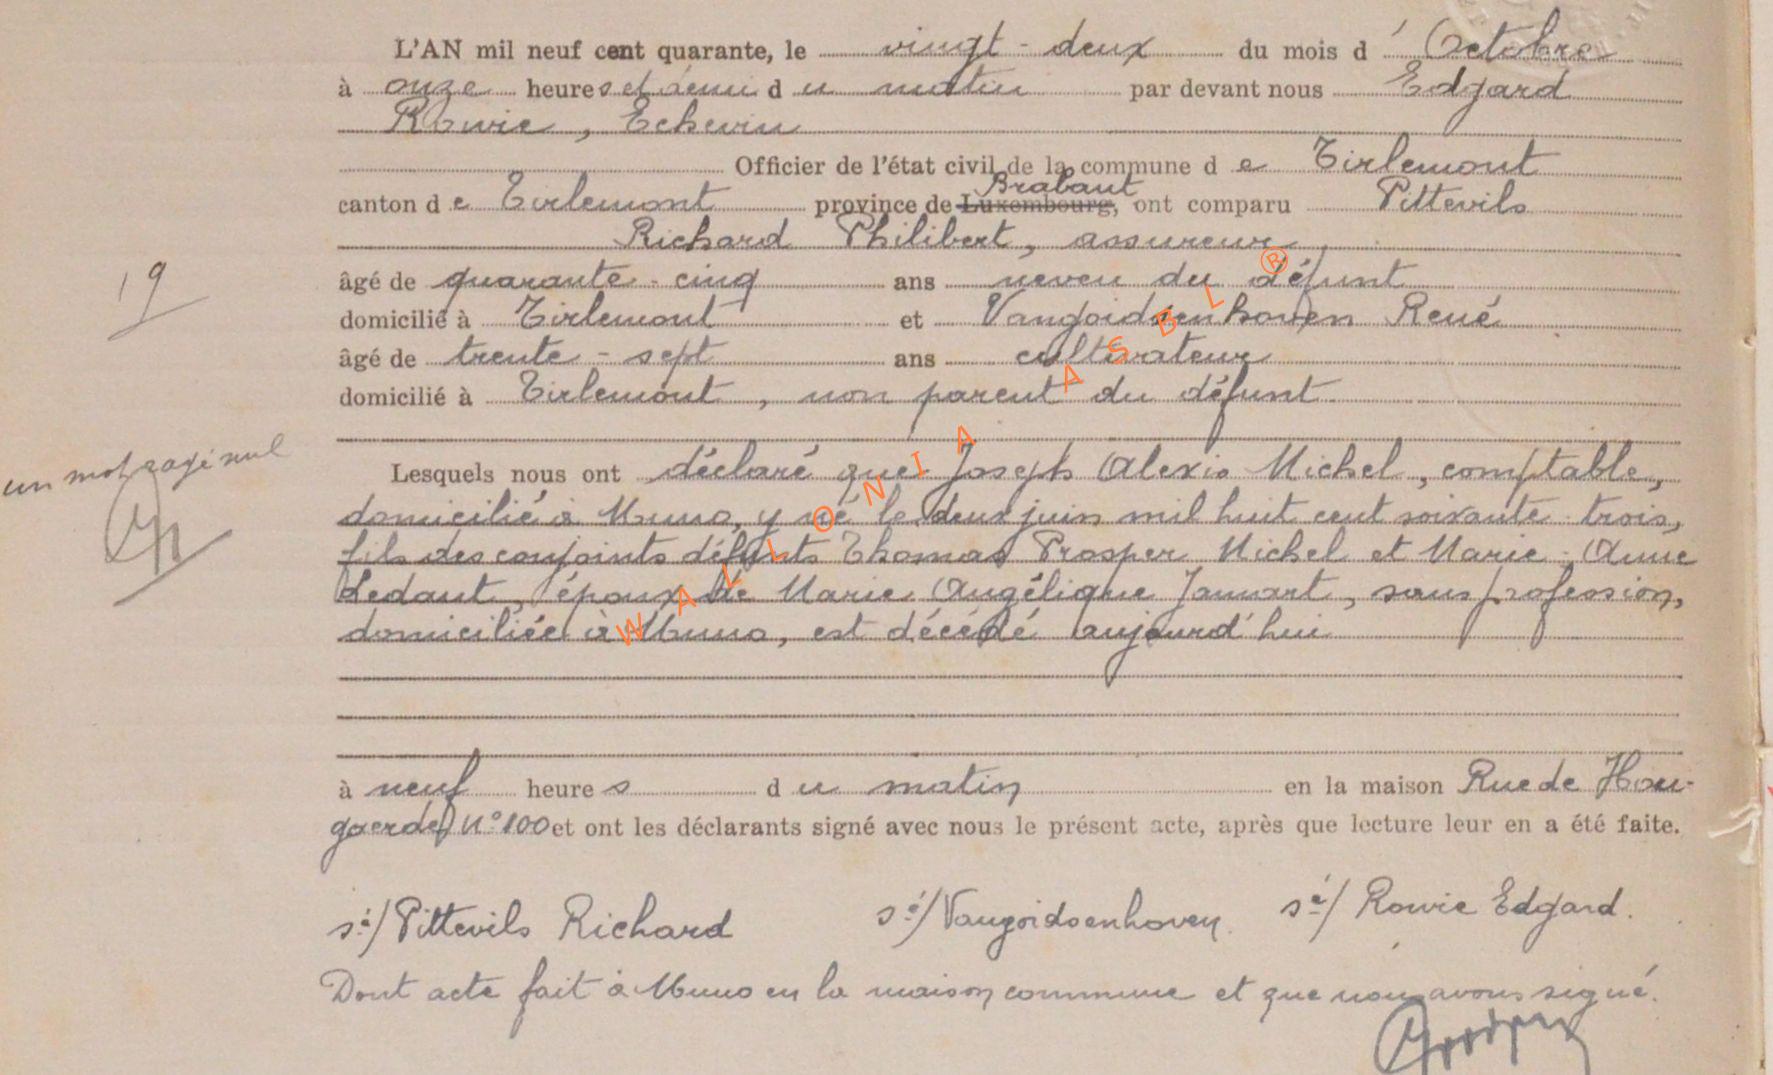 L'AN mil neuf cent quarante, le vingt-deux du mois d' Octobre
à onze heures et demi du matin par devant nous Edgard
Rowie, Echevin
Officier de l'état civil de la commune de Tirlemont
Brabant
canton de Tirlemont province de Luxembourg, ont comparu Pittevils
Richard Philibert, assureur,
âgé de quarante-cinq ans neveu du défunt
19
domicilié à Tirlemont et Vangoidsenhoven René
âgé de trente-sept ans cultivateur
domicilié à Tirlemont, non parent du défunt
un mot rayé nul
Lesquels nous ont déclaré que Joseph Alexis Michel, comptable,
domicilié à Muno, y né le deux juin mil huit cent soixante-trois,
fils des conjoints défunts Thomas Prosper Michel et Marie-Anne
Ledant, époux de Marie Angélique Jannart, sans profession,
domiciliée à Muno, est décédé aujourd'hui
à neuf heures du matin en la maison Rue de Hou-
gaerde, N° 100 et ont les déclarants signé avec nous le présent acte, après que lecture leur en a été faite.
sé/ Pittevils Richard sé/ Vangoidsenhoven sé/ Rowie Edgard.
Dont acte fait à Muno en la maison commune et que nous avons signé.
WALLONIA ASBL ®